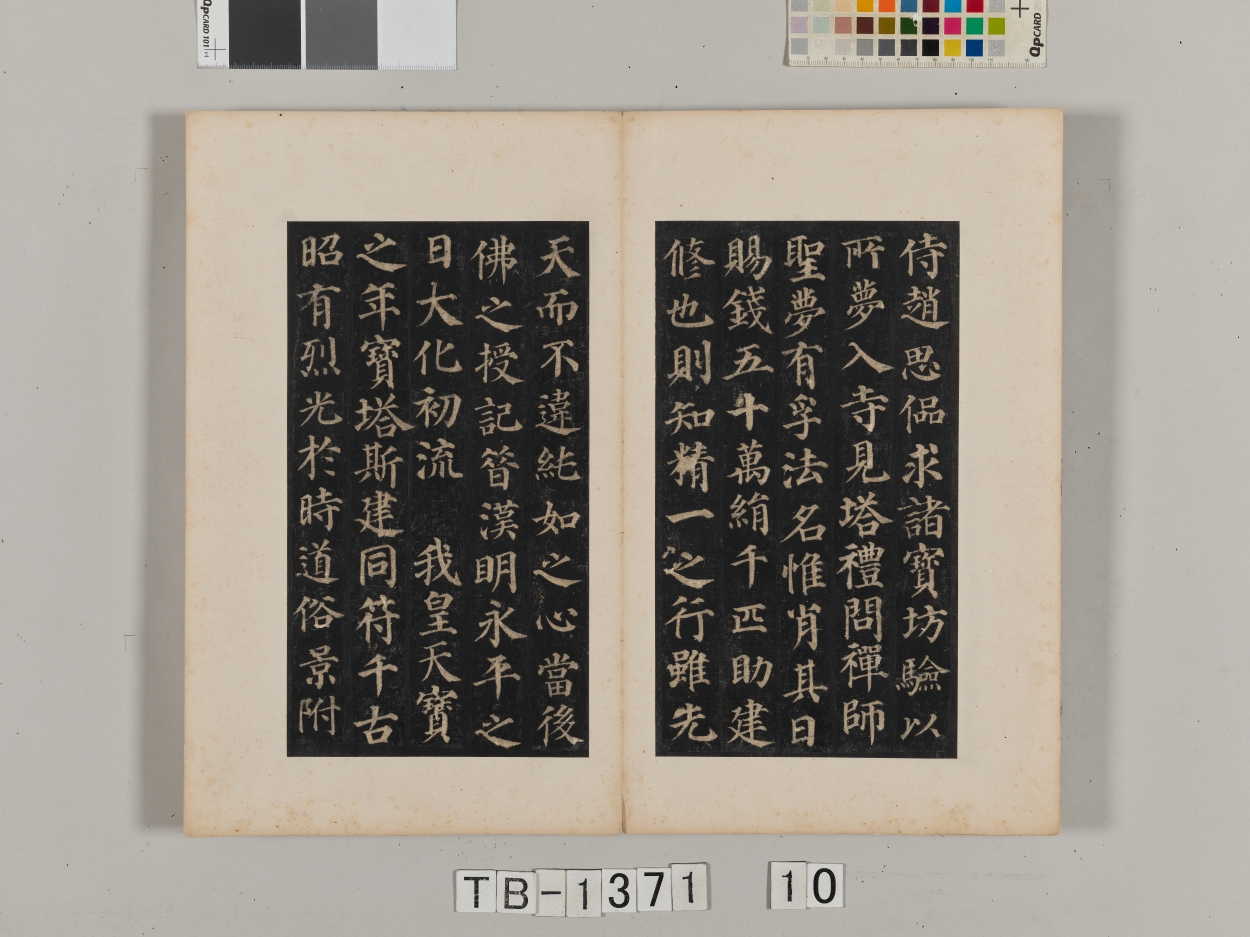 侍趙思偘求諸寶坊驗以
所夢入寺見塔禮問禪師
聖夢有孚法名惟肖其日
賜錢五十萬絹千匹助建
修也則知精一之行雖先
天而不違純如之心當後
佛之授記昔漢明永平之
日大化初流 我皇天寶
之年寶塔斯建同符千古
昭有烈光於時道俗景附
TB-1371 10
QPCARD 101
QPCARD